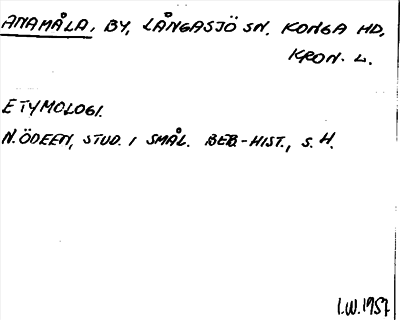 ANAMÅLA, BY, LÅNGASJÖ SN. KONGA HD,
KRON. L.
ETYMOLOGI.
N. ÖDEEN, STUD. I SMÅL. BEB.-HIST., S. H.
I.W. 1957